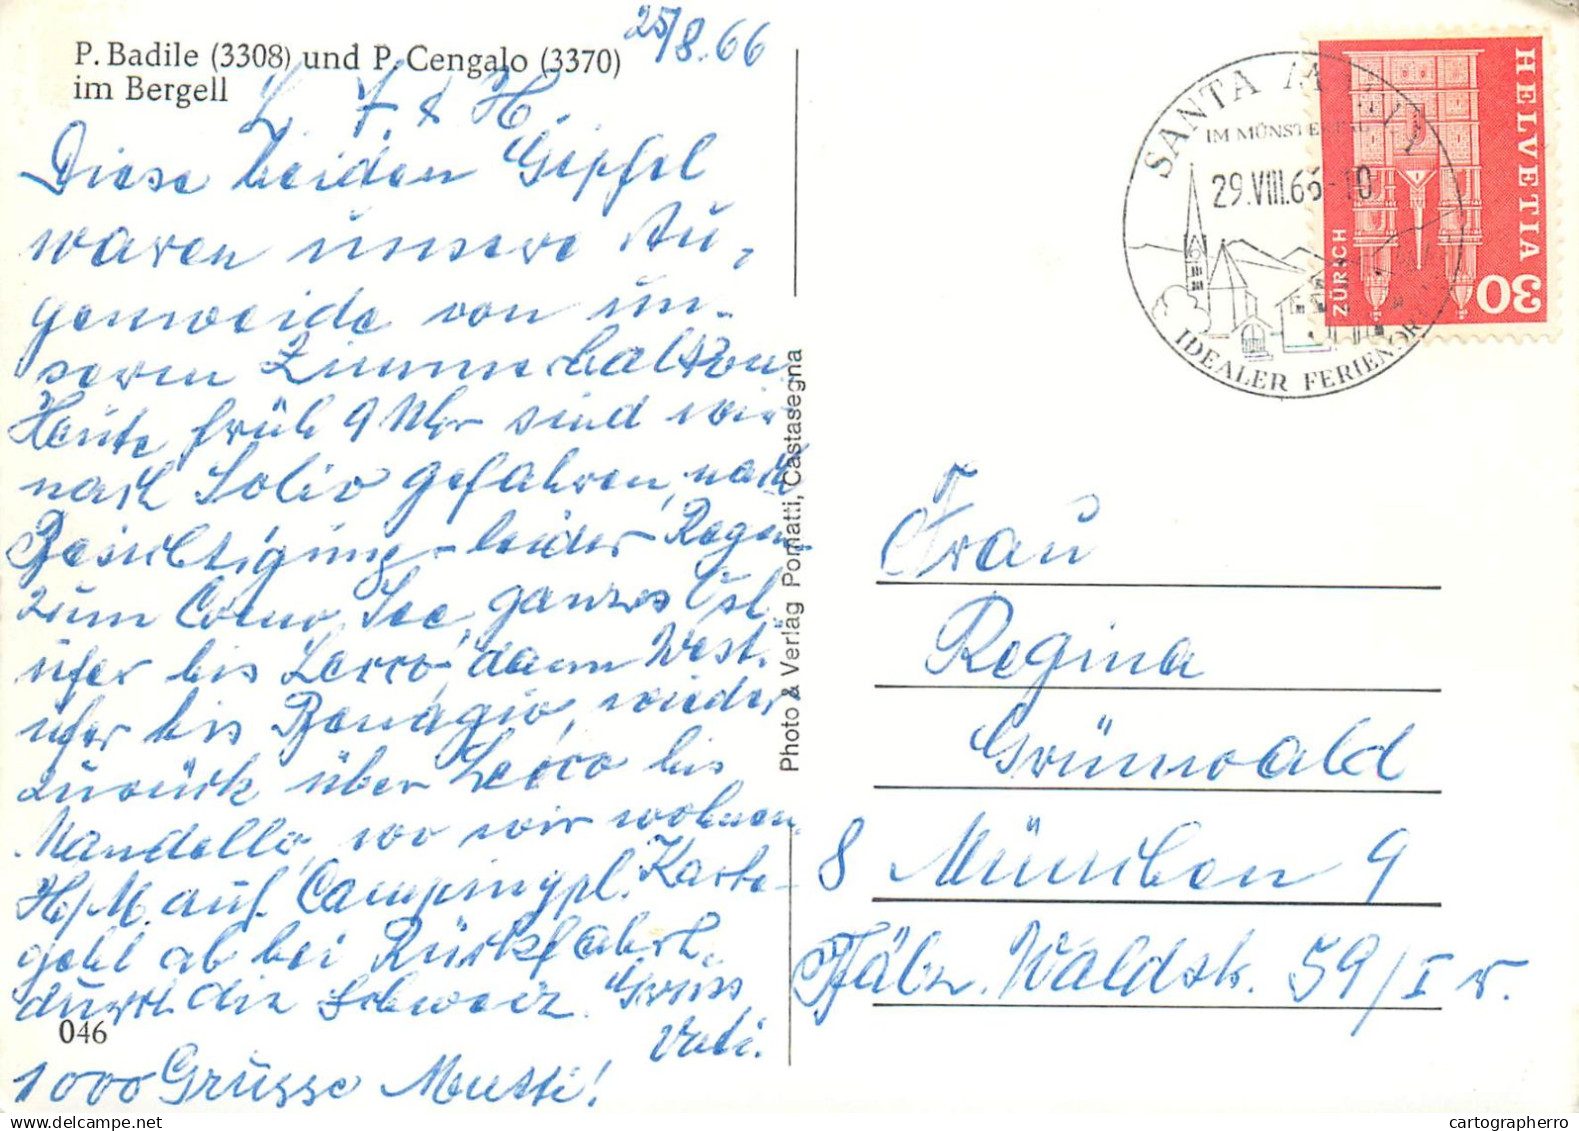 25/8.66
P. Badile (3308) und P. Cengalo (3370)
im Bergell
L. J. & H.
Diese beiden Gipfel
waren unsere Au-
genweide von un-
serem Zimmerbalkon
Heute früh 9 Uhr sind wir
nach Solio gefahren, nach
Besichtigung – leider Regen
zum Como See, ganzes Ost
ufer bis Lecco, dann West-
ufer bis Benagio, wieder
zurück über Lecco bis
Mandello, wo wir wohnen.
H/M. auf Campingpl. Karte
geht ab bei Rückfahrt
durch die Schweiz. Gruss
Vati.
046
1000 Grüsse Mutti!
Photo & Verlag Pomatti, Castasegna
SANTA MARIA
IM MÜNSTERTAL
29.VIII.66-10
IDEALER FERIENORT
HELVETIA
ZÜRICH
30
Frau
Regina
Grünwald
8 München 9
Pfälz. Waldstr. 59/I r.
cartographerro